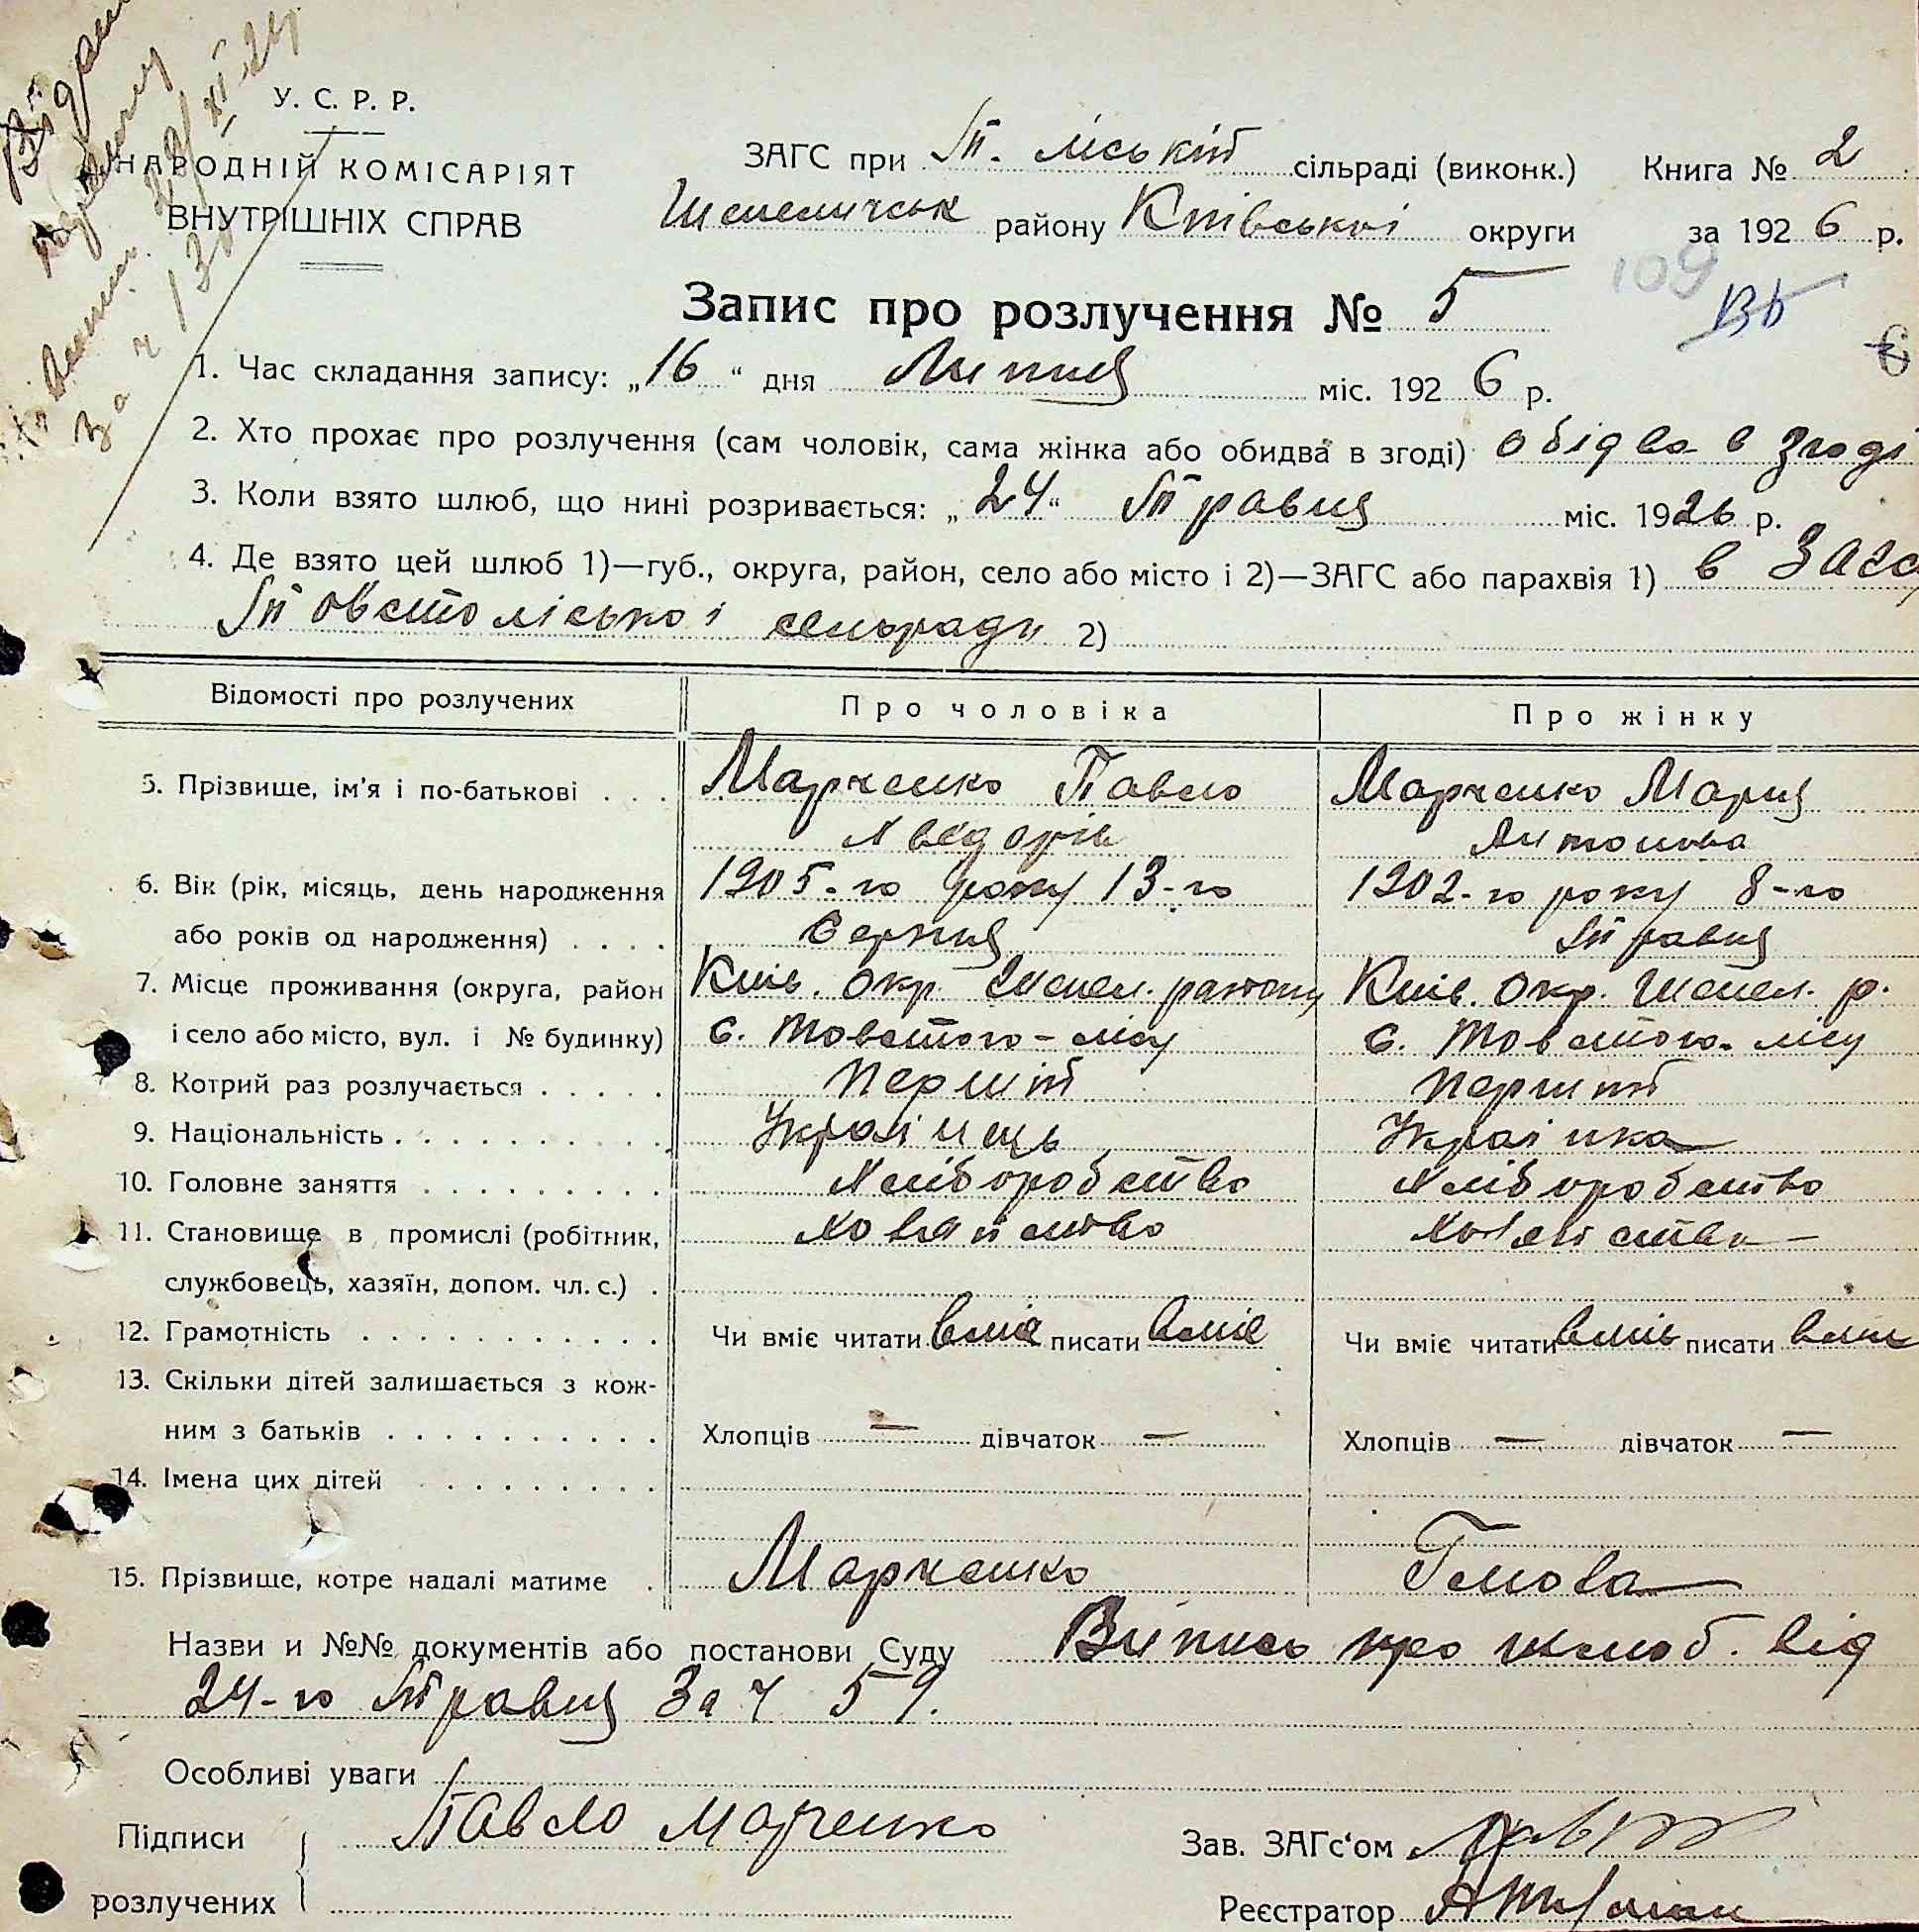 У. С. Р. Р.
НАРОДНІЙ КОМІСАРІЯТ
ВНУТРІШНІХ СПРАВ
ЗАГС при Т. ліській сільраді (виконк.) Книга № 2
Шепеличськ району Київської округи за 1926 р.
109
Запис про розлучення № 5
1. Час складання запису: „16“ дня Липня міс. 1926 р.
2. Хто прохає про розлучення (сам чоловік, сама жінка або обидва в згоді) обідва в згоді
3. Коли взято шлюб, що нині розривається: „24“ Травня міс. 1926 р.
4. Де взято цей шлюб 1)—губ., округа, район, село або місто і 2)—ЗАГС або парахвія 1) в Загс
Товстоліської сельради 2)
Відомості про розлучених Про чоловіка Про жінку
5. Прізвище, ім'я і по-батькові . . . Марченко Павло Марченко Мария
Антонова
6. Вік (рік, місяць, день народження 1905-го року 13-го 1902-го року 8-го
або років од народження) . . . . Серпня Травня
7. Місце проживання (округа, район Київ. Окр. Шепел. району Київ. Окр. Шепел. р.
і село або місто, вул. і № будинку) с. Товстого-лісу с. Товстого-лісу
8. Котрий раз розлучається . . . . . Перший Перший
9. Національність . . . . . . . . . . Українець Українка
10. Головне заняття . . . . . . . . . Хліборобство Хліборобство
11. Становище в промислі (робітник,
службовець, хазяїн, допом. чл. с.) .
12. Грамотність . . . . . . . . . . . . Чи вміє читати вміє писати вміє Чи вміє читати вміє писати вміє
13. Скільки дітей залишається з кож-
ним з батьків . . . . . . . . . . Хлопців — дівчаток — Хлопців — дівчаток —
14. Імена цих дітей . . . . . . . . .
15. Прізвище, котре надалі матиме . Марченко
Назви и №№ документів або постанови Суду Випись про шлюб. від
24-го Травня За ч 59.
Особливі уваги
Підписи Павло Марченко Зав. ЗАГс‘ом
розлучених Реєстратор